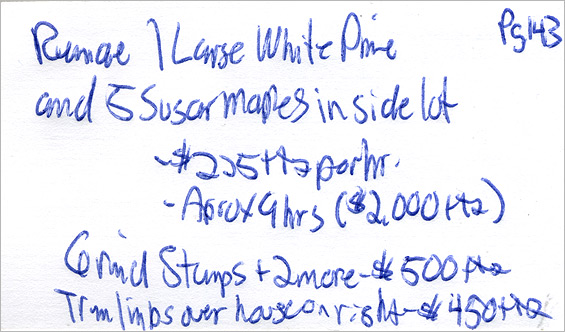 Pg 143
Remove 1 Large White Pine
and 5 Sugar Maples in side lot
- $225 + tax per hr.
- Aprox 9 hrs ($2,000 + tax)
Grind Stumps + 2 more - $500 + tax
Trim limbs over house on right - $450 + tax